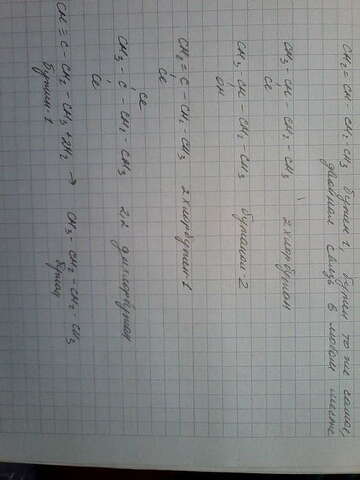 CH2=CH-CH2-CH3 бутен 1, бутен то же самое,
двойная связь в любом месте
CH3-CH-CH2-CH3 2 хлорбутан
Cl
CH3-CH-CH2-CH3 бутанол-2
OH
CH2=C-CH2-CH3 2 хлорбутен-1
Cl
Cl
CH3-C-CH2-CH3 2,2 дихлорбутан
Cl
CH≡C-CH2-CH3+2H2 → CH3-CH2-CH2-CH3
Бутин-1 бутан